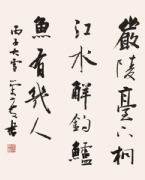 嚴陵臺下桐
江水解釣鱸
魚有幾人
丙子大雪